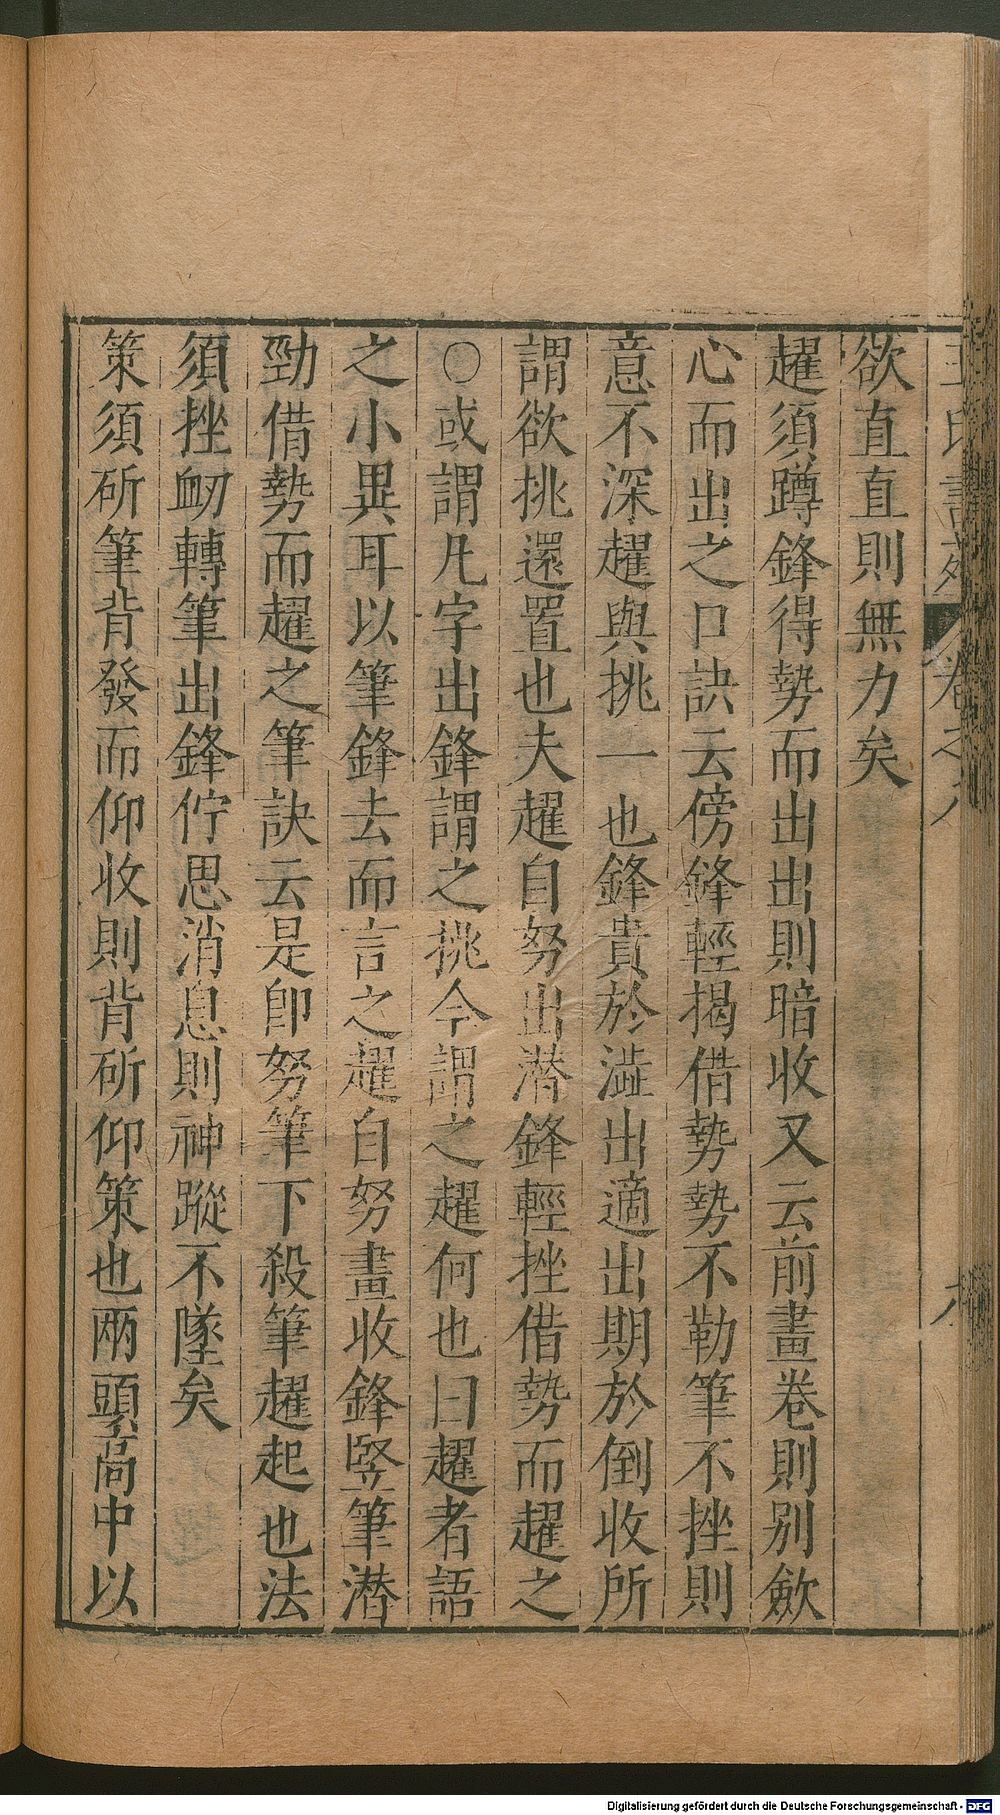 欲直直則無力矣
趯須蹲鋒得勢而出出則暗收又云前畫卷則別斂
心而出之口訣云傍鋒輕揭借勢勢不勒筆不挫則
意不深趯與挑一也鋒貴於澁出適出期於倒收所
謂欲挑還置也夫趯自努出潜鋒輕挫借勢而趯之
〇或謂凡字出鋒謂之挑今謂之趯何也曰趯者語
之小異耳以筆鋒去而言之趯自努畫收鋒竪筆潜
勁借勢而趯之筆訣云是卽努筆下殺筆趯起也法
須挫衂轉筆出鋒佇思消息則神蹤不墜矣
策須斫筆背發而仰收則背斫仰策也兩頭高中以
書苑 卷之八
Digitalisierung gefördert durch die Deutsche Forschungsgemeinschaft - DFG